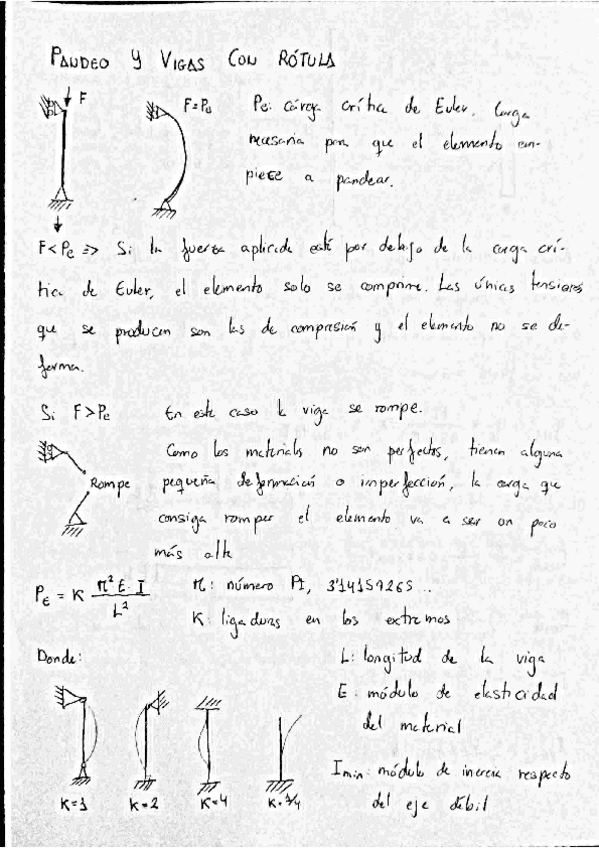 PANDEO Y VIGAS CON RÓTULA
F
F=Pe
Pe: carga crítica de Euler. Carga
necesaria para que el elemento em-
piece a pandear.
F<Pe => Si la fuerza aplicada está por debajo de la carga crí-
tica de Euler, el elemento solo se comprime. Las únicas tensiones
que se producen son las de compresión y el elemento no se de-
forma.
Si F>Pe En este caso la viga se rompe.
Como los materiales no son perfectos, tienen alguna
Rompe pequeña deformación o imperfección, la carga que
consiga romper el elemento va a ser un poco
más alta
PE = K π² E · I / L²
π: número PI, 3'14159265...
K: ligaduras en los extremos
Donde:
L: longitud de la viga
E: módulo de elasticidad
del material
Imin: módulo de inercia respecto
del eje débil
K=1 K=2 K=4 K=1/4